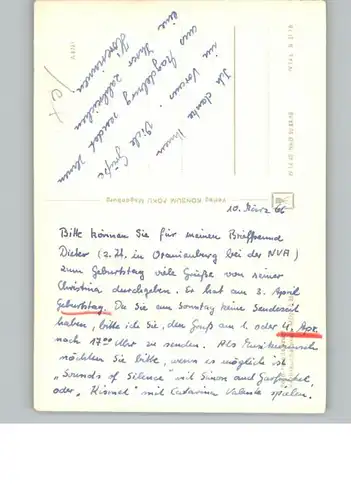 10. März 66
Bitte können Sie für meinen Brieffreund
Dieter (z. Zt. in Oranienburg bei der NVA)
zum Geburtstag viele Grüße von seiner
Christina durchgeben. Er hat am 3. April
Geburtstag. Da Sie am Sonntag keine Sendezeit
haben, bitte ich Sie, den Gruß am 1. oder 4. Apr.
nach 17⁰⁰ Uhr zu senden. Als Musikwunsch
möchten Sie bitte, wenn es möglich ist
„Sounds of Silence" mit Simon and Garfunkel,
oder „Kismet" mit Catarina Valente spielen.
Ich danke Ihnen
im Voraus. Viele Grüße
aus Magdeburg sendet Ihnen
Ihrer zahlreichen
eine Hörerinnen
Verlag KONSUM FOKU Magdeburg